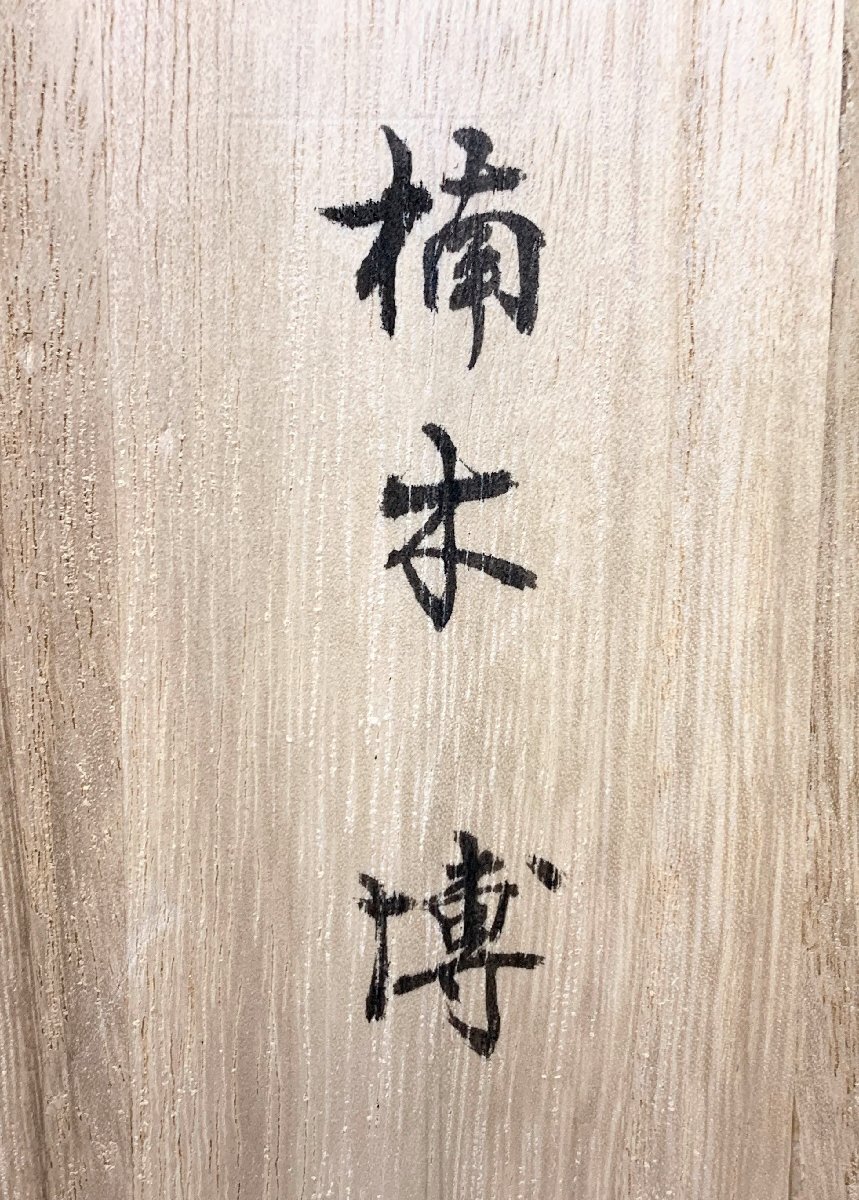 楠木博